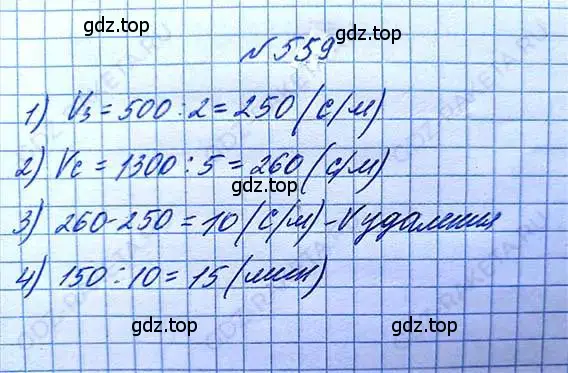 gdz.top
№559
1) Vз = 500 : 2 = 250 (с/м)
2) Vс = 1300 : 5 = 260 (с/м)
gdz.top
3) 260 - 250 = 10 (с/м) - V удаления
4) 150 : 10 = 15 (мин)
gdz.top
gdz.top